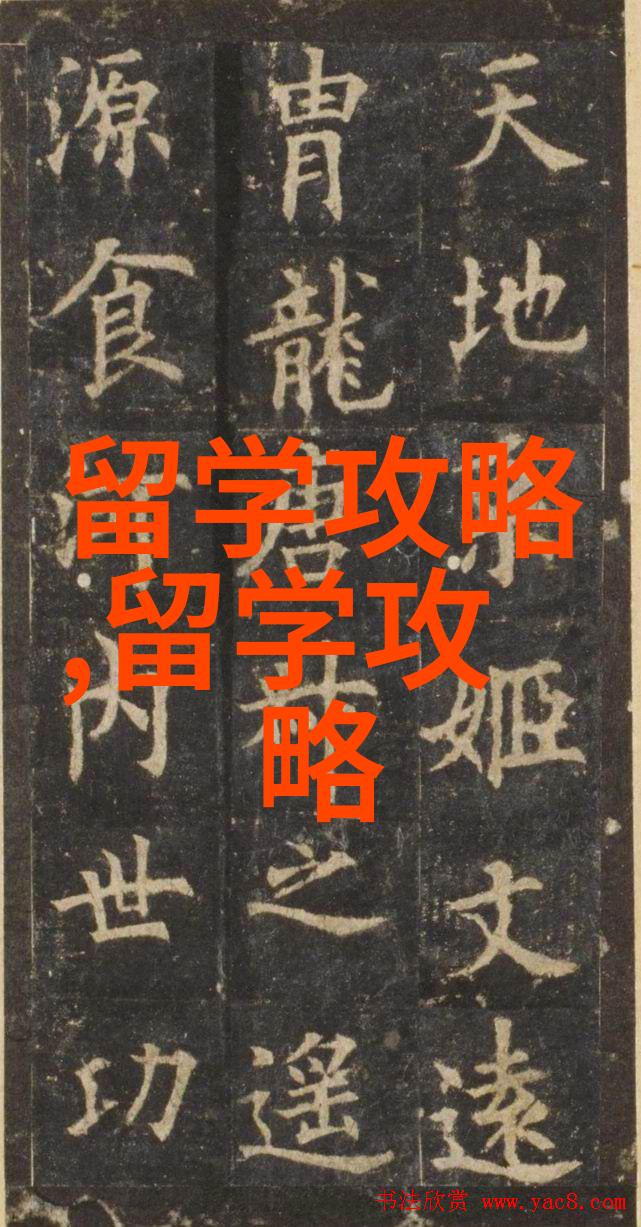 天地姬文遠
胄龍唐之遥
源食内世功
留学攻略
,留学攻
略
书法欣赏 www.yac8.com